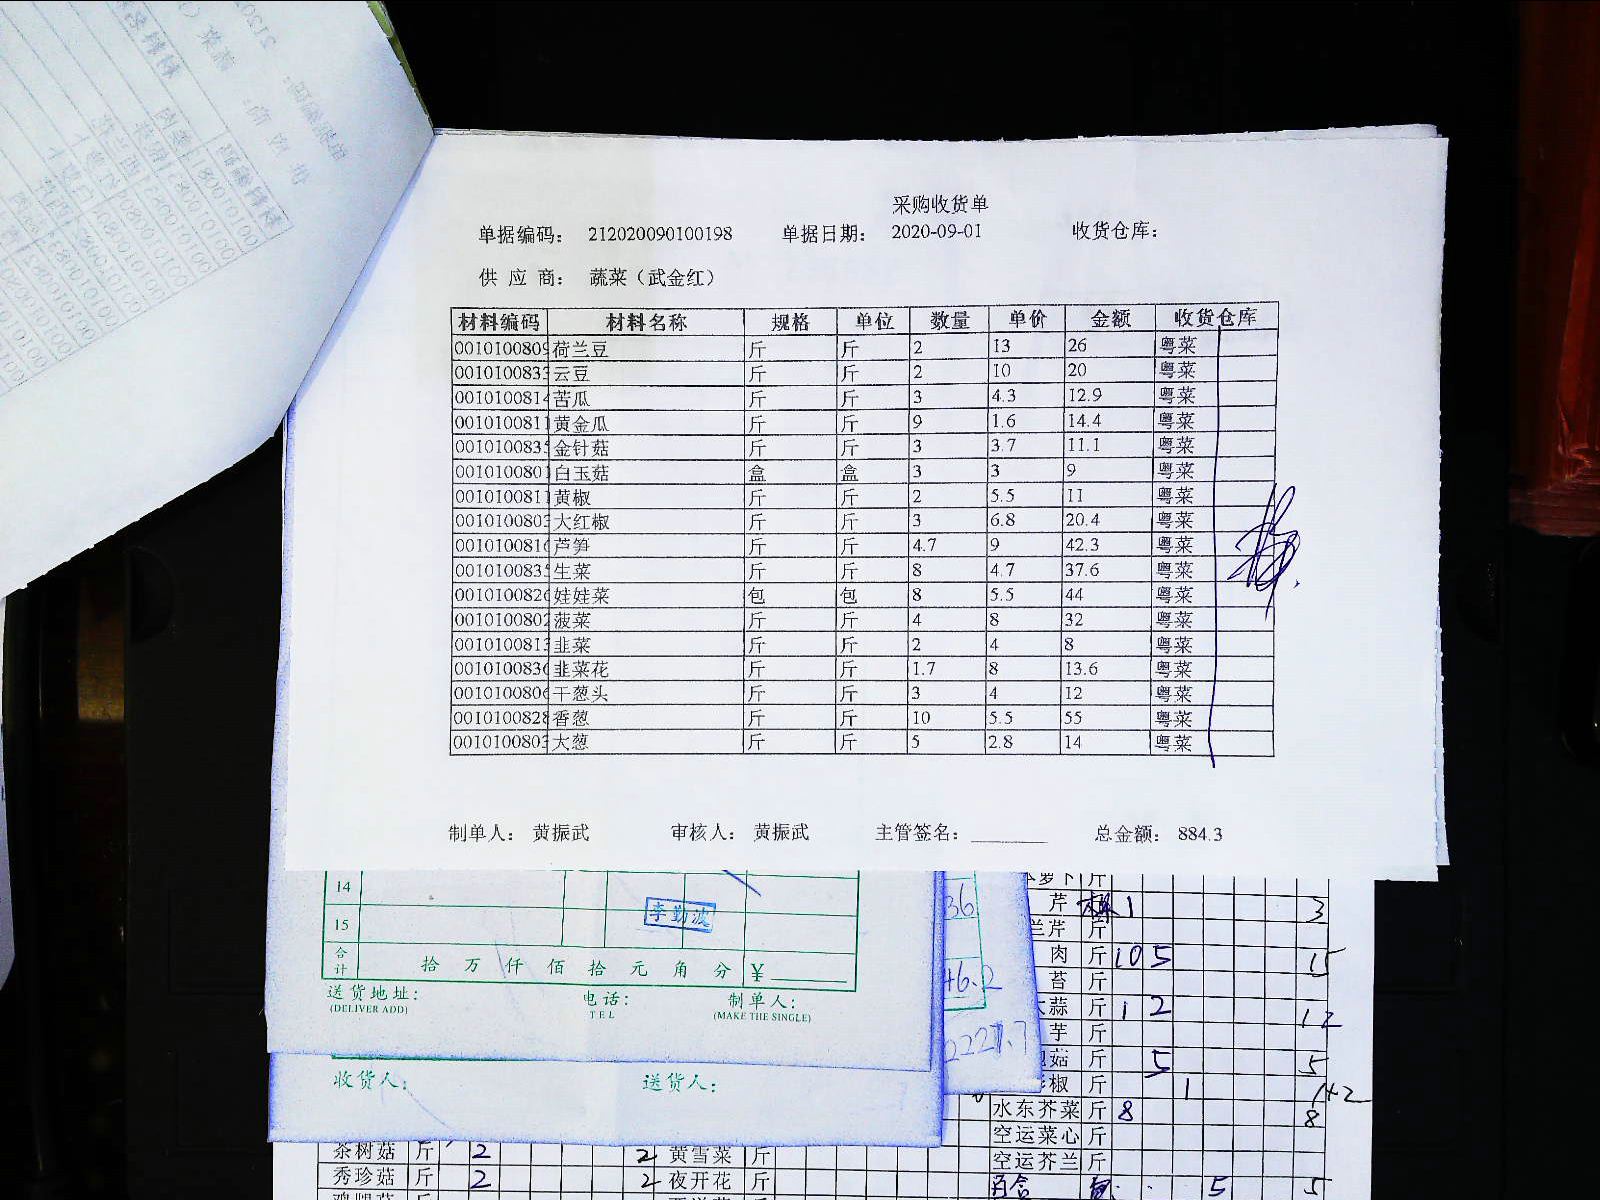 采购收货单
单据编码： 212020090100198 单据日期： 2020-09-01 收货仓库：
供 应 商： 蔬菜（武金红）
材料编码 材料名称 规格 单位 数量 单价 金额 收货仓库
001010080 荷兰豆 斤 斤 2 13 26 粤菜
001010083 云豆 斤 斤 2 10 20 粤菜
001010081 苦瓜 斤 斤 3 4.3 12.9 粤菜
001010081 黄金瓜 斤 斤 9 1.6 14.4 粤菜
001010083 金针菇 斤 斤 3 3.7 11.1 粤菜
001010080 白玉菇 盒 盒 3 3 9 粤菜
001010081 黄椒 斤 斤 2 5.5 11 粤菜
001010080 大红椒 斤 斤 3 6.8 20.4 粤菜
001010081 芦笋 斤 斤 4.7 9 42.3 粤菜
001010083 生菜 斤 斤 8 4.7 37.6 粤菜
001010082 娃娃菜 包 包 8 5.5 44 粤菜
001010080 菠菜 斤 斤 4 8 32 粤菜
001010081 韭菜 斤 斤 2 4 8 粤菜
001010083 韭菜花 斤 斤 1.7 8 13.6 粤菜
001010080 干葱头 斤 斤 3 4 12 粤菜
001010082 香葱 斤 斤 10 5.5 55 粤菜
001010080 大葱 斤 斤 5 2.8 14 粤菜
制单人： 黄振武 审核人： 黄振武 主管签名： 总金额： 884.3
14
15 李勤波
合计 拾 万 仟 佰 拾 元 角 分 ¥
送货地址： 电话： 制单人：
(DELIVER ADD) TEL (MAKE THE SINGLE)
收货人： 送货人：
36
46.2
2227.7
萝卜 斤
芹 1 3
兰芹 斤
肉 斤 10 5 15
苔 斤
大蒜 斤 1 2 12
芋 斤
菇 斤 5 5
椒 斤 1 1+2
水东芥菜 斤 8 8
空运菜心 斤
空运芥兰 斤
百合 5 5
茶树菇 斤 2 2 黄雪菜 斤
秀珍菇 斤 2 2 夜开花 斤